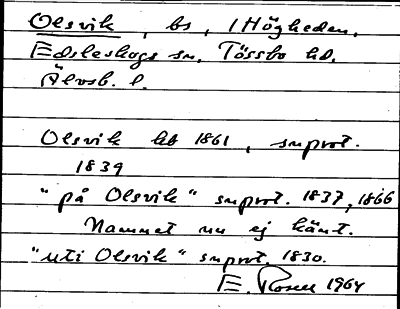 Olsvik, bs, i Högheden,
Edsleskogs sn, Tössbo hd,
Älvsb. l.
Olsvik kb 1861, snprot.
1839
"på Olsvik" snprot. 1837, 1866
Namnet nu ej känt.
"uti Olsvik" snprot. 1830.
E. Rosell 1964